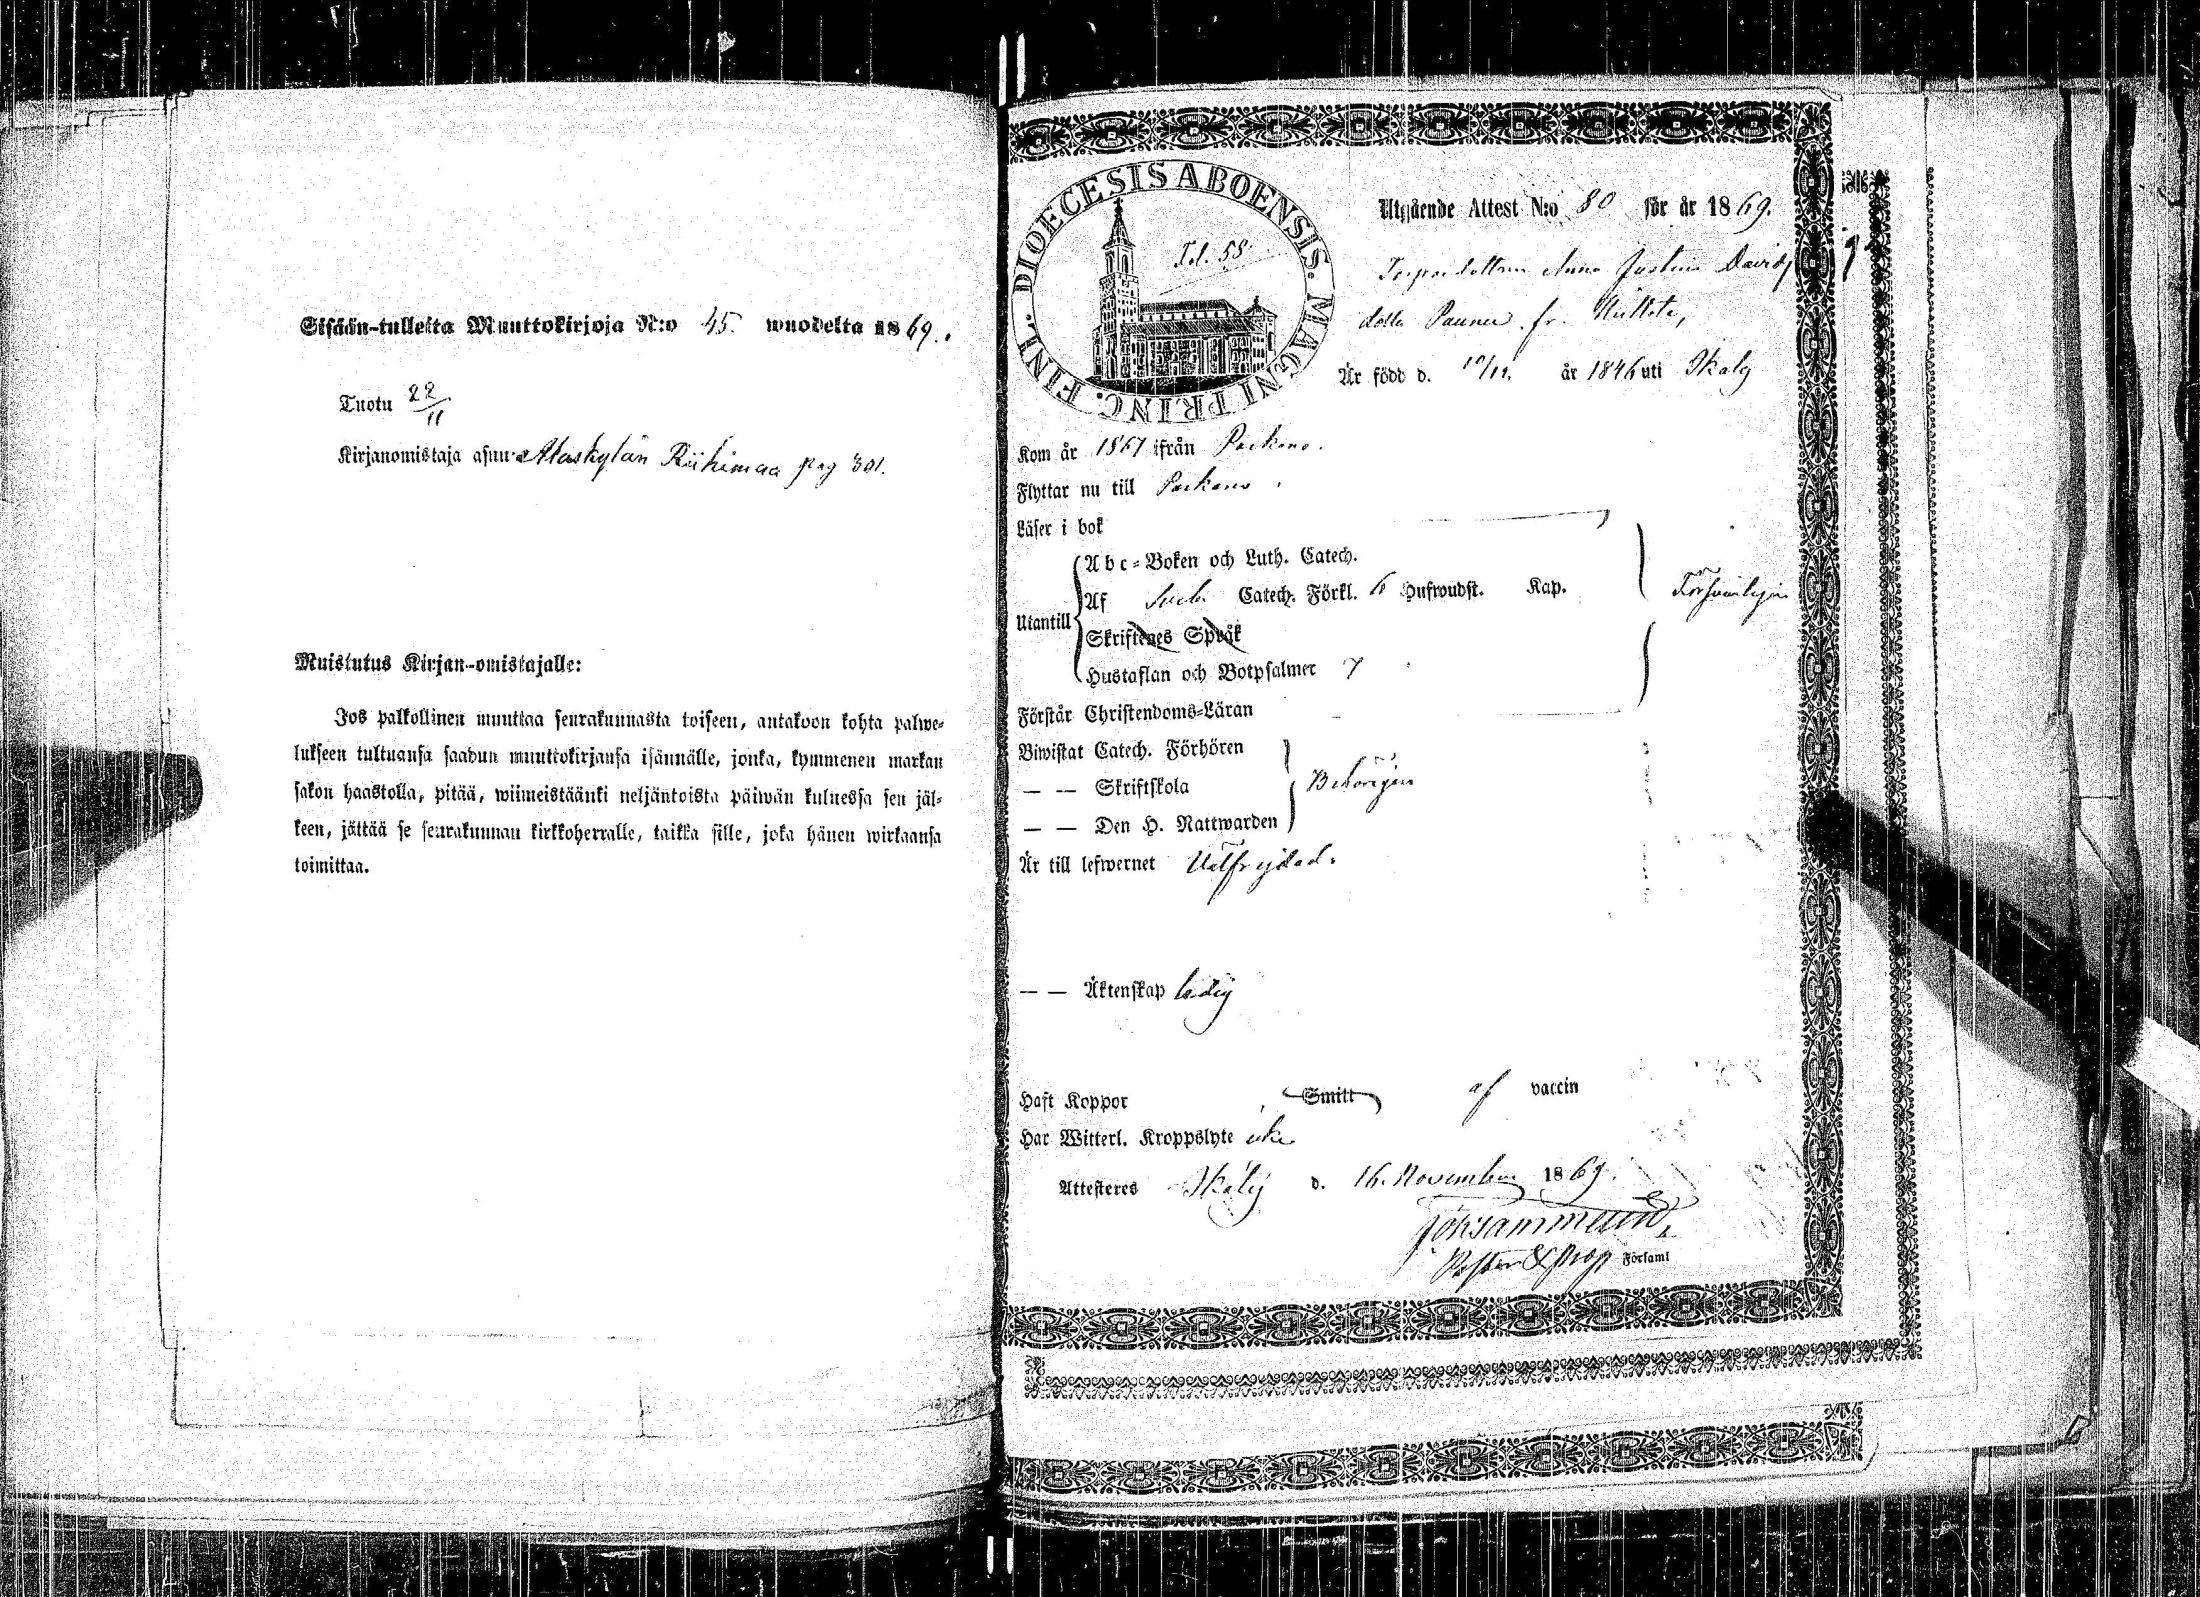 Sisään-tulleita Muuttokirjoja N:o 45. wuodelta 1869.
Tuotu 22/11
Kirjanomistaja asuu Alaskylän Riihimaa pag 301.
Muistutus Kirjan-omistajalle:
Jos palkollinen muuttaa seurakunnasta toiseen, antakoon kohta palwe-
lukseen tultuansa saadun muuttokirjansa isännälle, jonka, kymmenen markan
sakon haastolla, pitää, wiimeistäänki neljäntoista päiwän kuluessa sen jäl-
keen, jättää se seurakunnan kirkkoherralle, taikka sille, joka hänen wirkaansa
toimittaa.
DIOECESIS ABOENSIS. MAGNI PRINC. FINL.
Fol. 58
Utgående Attest N:o 80 för år 1869.
Anna Justina Davids
dotter fr.
Är född d. 10/12. år 1846 uti Ikalis
Kom år 1867 ifrån Parkano.
Flyttar nu till Parkano.
Läser i bok
Abc-Boken och Luth. Catech.
Utantill
Af Catech. Förkl. 6 Hufwudst. Kap.
Försvarligen
Skriftenes Språk
Hustaflan och Botpsalmer 7
Förstår Christendoms-Läran
Biwistat Catech. Förhören
— — Skriftskola
Behörigen
— — Den H. Nattwarden
Är till lefwernet Wälfrejdad.
— — Äktenskap ledig
Haft Koppor Smitt af vaccin
Har Witterl. Kroppslyte icke
Attesteres Ikalis d. 16 November 1869.
Pastor & Prop Församl